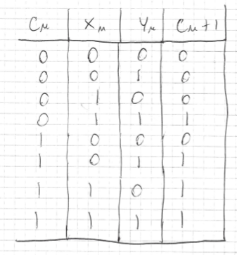 Cn Xn Yn Cn+1
0 0 0 0
0 0 1 0
0 1 0 0
0 1 1 1
1 0 0 0
1 0 1 1
1 1 0 1
1 1 1 1